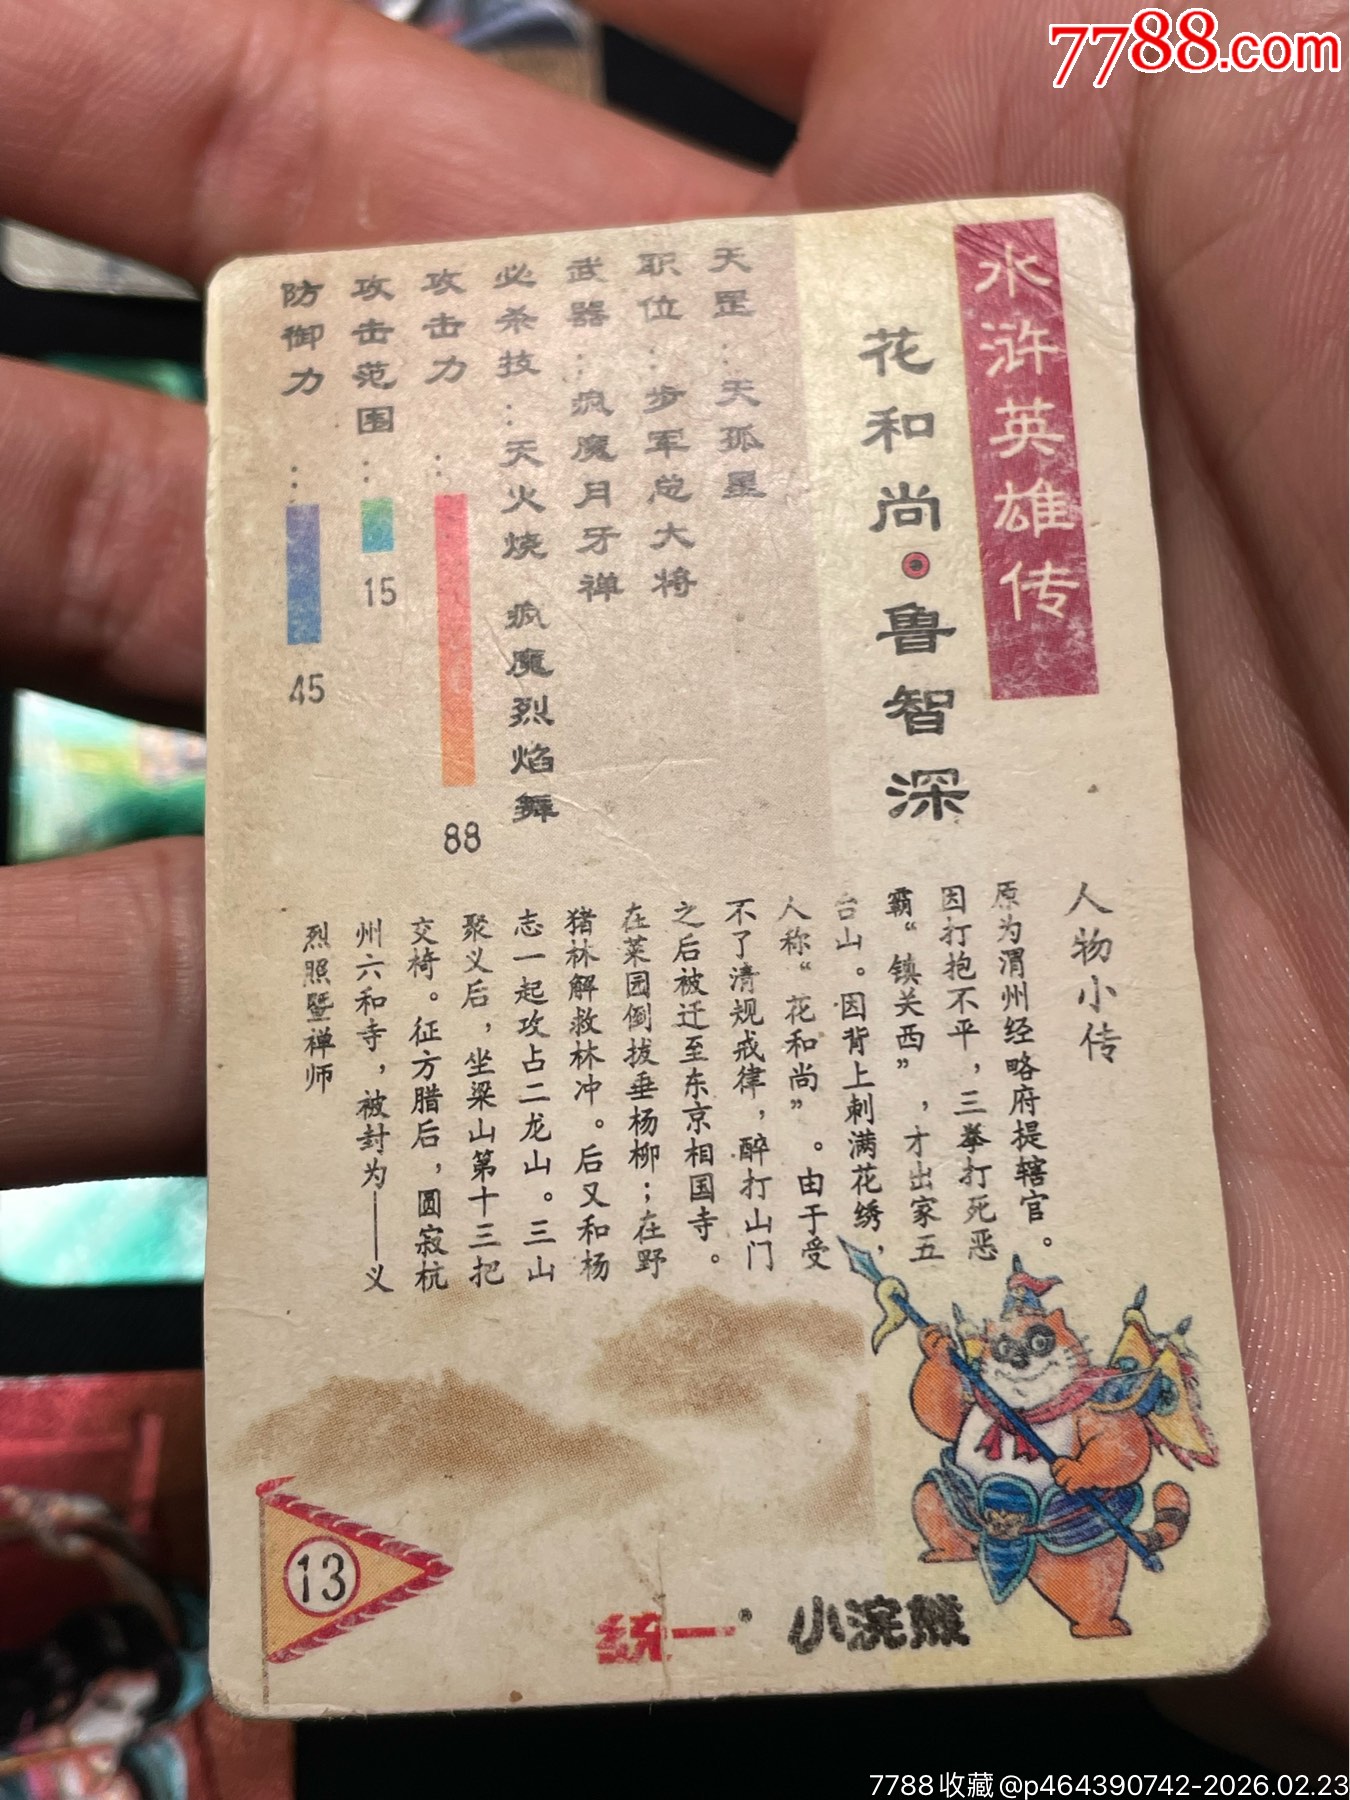 7788.com
水浒英雄传
花和尚·鲁智深
天罡：天孤星
职位：步军总大将
武器：疯魔月牙禅
必杀技：天火烧 疯魔烈焰舞
攻击力：88
攻击范围：15
防御力：45
人物小传
原为渭州经略府提辖官。
因打抱不平，三拳打死恶
霸“镇关西”，才出家五
台山。因背上刺满花绣，
人称“花和尚”。由于受
不了清规戒律，醉打山门
之后被迁至东京相国寺。
在菜园倒拔垂杨柳；在野
猪林解救林冲。后又和杨
志一起攻占二龙山。三山
聚义后，坐梁山第十三把
交椅。征方腊后，圆寂杭
州六和寺，被封为——义
烈照暨禅师
13
统一® 小浣熊
7788收藏@p464390742-2026.02.23